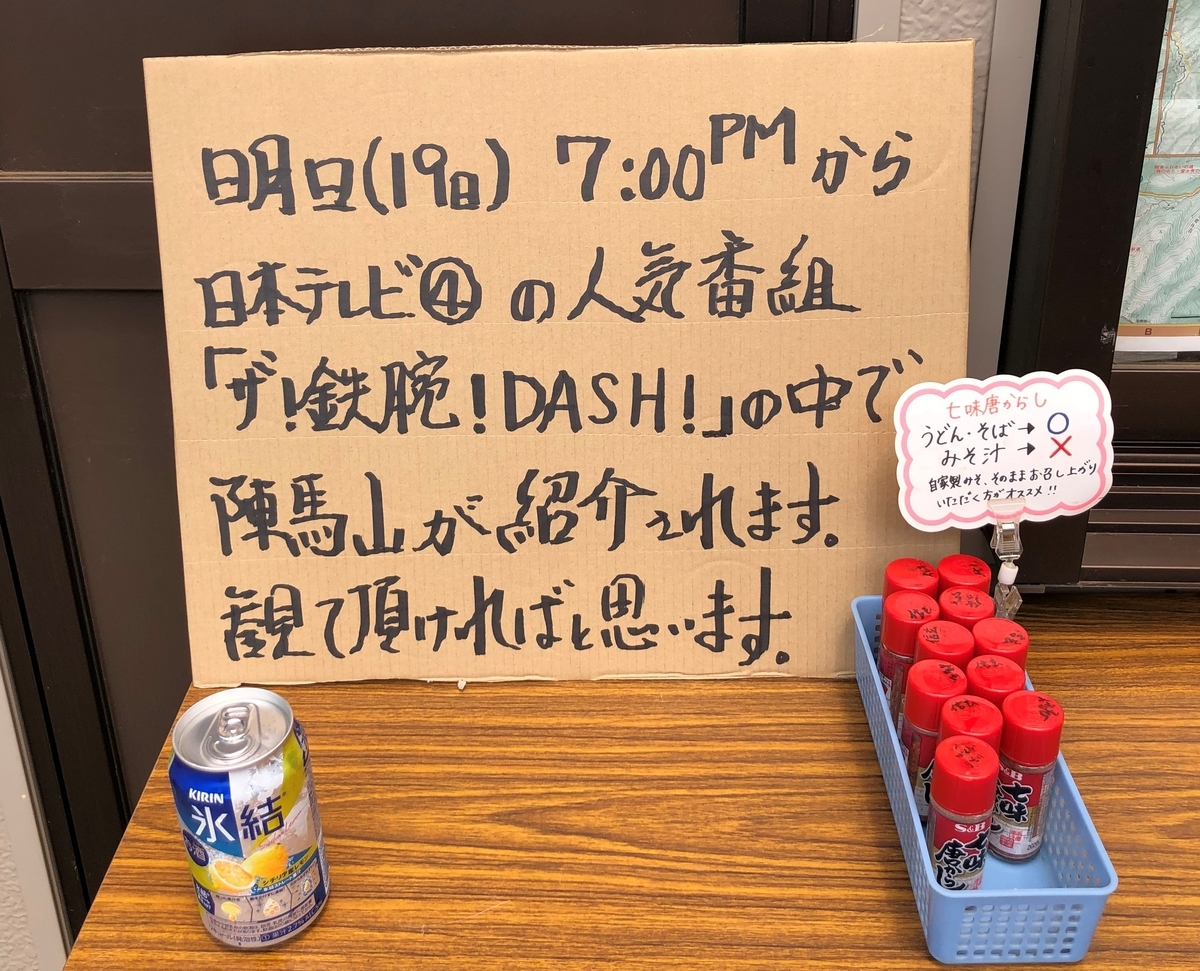 明日(19日) 7:00PMから
日本テレビ④の人気番組
「ザ!鉄腕!DASH!」の中で
陣馬山が紹介されます。
観て頂ければと思います。
七味唐がらし
うどん・そば→○
みそ汁→×
自家製みそ、そのままお召し上がり
いただく方がオススメ!!
KIRIN
氷結
シチリア産レモン
S&B
七味
S&B
七味
唐からし
B